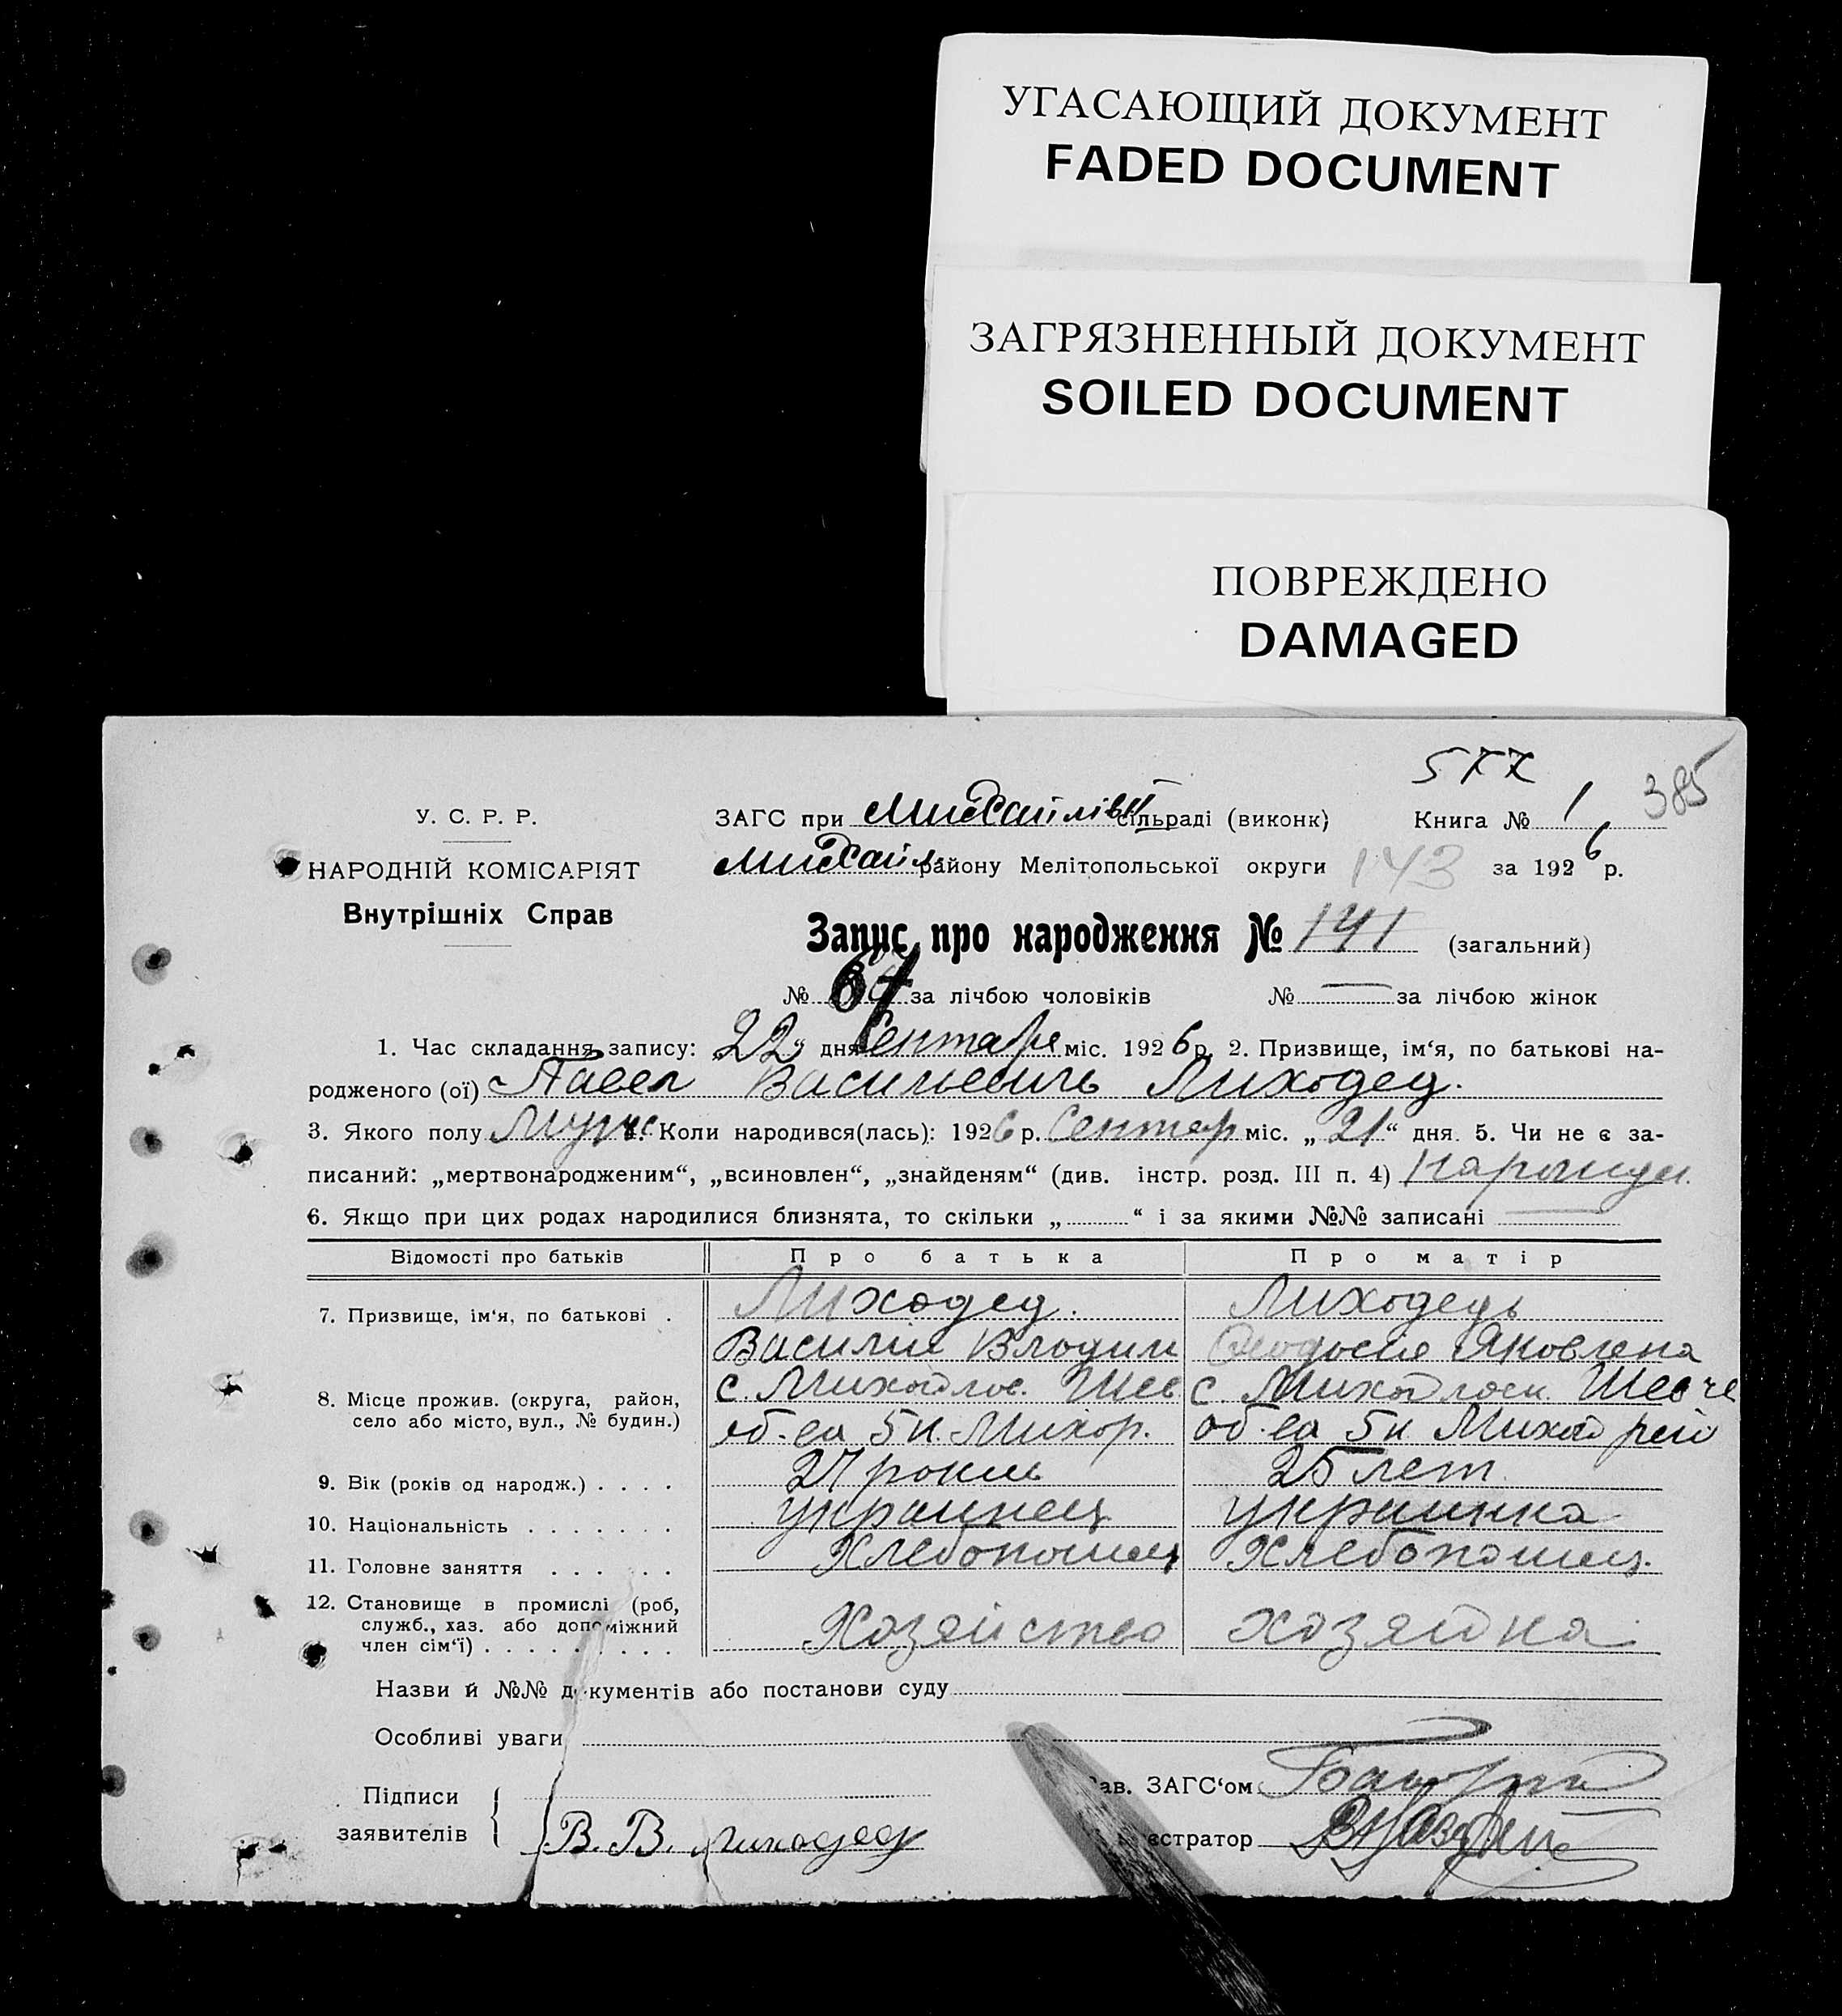 УГАСАЮЩИЙ ДОКУМЕНТ
FADED DOCUMENT
ЗАГРЯЗНЕННЫЙ ДОКУМЕНТ
SOILED DOCUMENT
ПОВРЕЖДЕНО
DAMAGED
385
У. С. Р. Р.
НАРОДНІЙ КОМІСАРІЯТ
Внутрішніх Справ
ЗАГС при Михайлівк сільраді (виконк) Книга № 1
Михайл району Мелітопольської округи 143 за 1926 р.
Запис про народження № 141 (загальний)
№ 67 за лічбою чоловіків № — за лічбою жінок
1. Час складання запису: „22“ дня Сентабре міс. 1926 р. 2. Призвище, ім‘я, по батькові на-
родженого (ої) Павел Васильевичь Лиходед.
3. Якого полу Муж. 4. Коли народився(лась): 1926 р. Сентяр міс. „21“ дня. 5. Чи не є за-
писаний: „мертвонародженим“, „всиновлен“, „знайденям“ (див. інстр. розд. III п. 4)
6. Якщо при цих родах народилися близнята, то скільки „ “ і за якими №№ записані —
Відомості про батьків Про батька Про матір
7. Призвище, ім‘я, по батькові . Лиходед. Лиходедь
Василий Владим Феодосия Яковлена
8. Місце прожив. (округа, район, село або місто, вул., № будин.) с. Михайлов. Шев с Михайловк Шевче
об-ва 5 к. Мих р. об-ва 5 к Михай рай
9. Вік (років од народж.) . . . . 27 роки 25 лет.
10. Національність . . . . . . . украинец украинка
11. Головне заняття . . . . . . Хлебопошец Хлебопошец.
12. Становище в промислі (роб, служб., хаз. або допоміжний член сім‘ї) . . . . . . . . . Хозяйство хозяйка
Назви й №№ документів або постанови суду
Особливі уваги
Підписи заявителів В. В. Лиходед
Зав. ЗАГС‘ом
Реєстратор